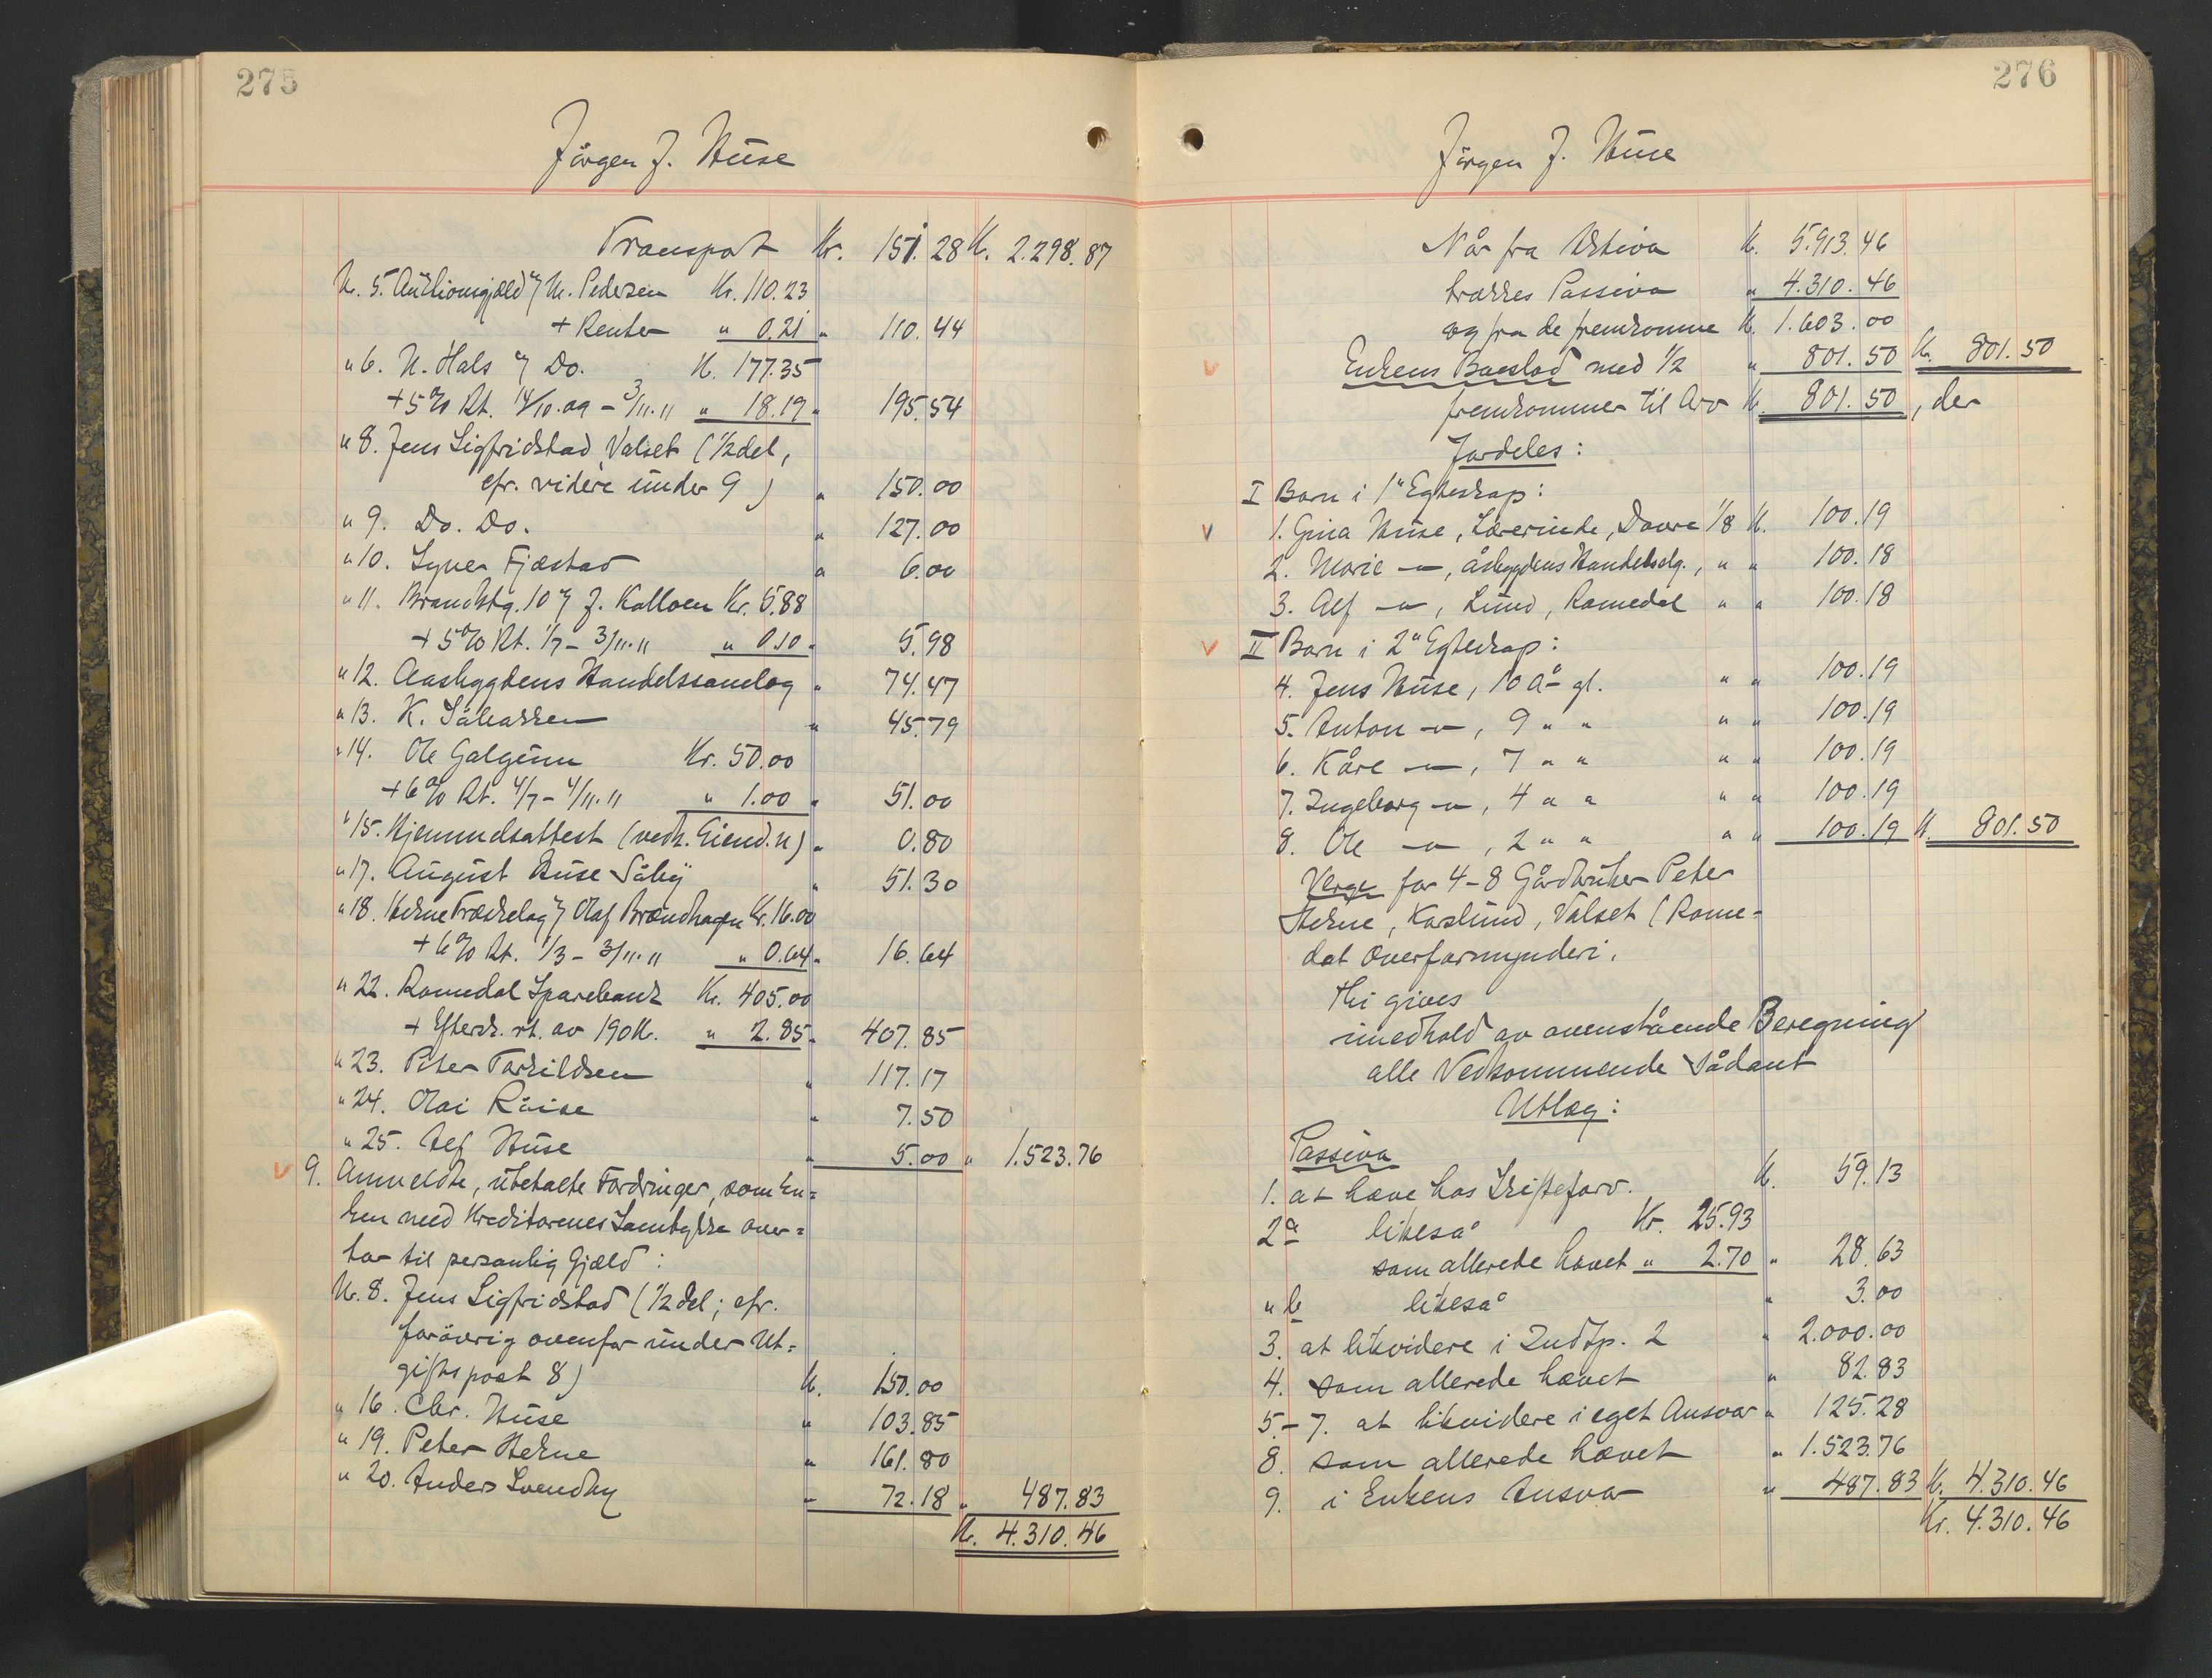 275
Jörgen J. Huse
Transport Kr. 151.28 Kr. 2.298.87
Nr. 5. Auktionsgjæld v/ N. Pedersen Kr. 110.23
+ Renter " 0.21 " 110.44
" 6. N. Hals v/ Do. Kr. 177.35
+ 5% Rt. 14/10.09 - 3/11.11 " 18.19 " 195.54
" 8. Jens Sigfridstad, Valset (1/2 del,
cfr. videre under 9) " 150.00
" 9. Do. Do. " 127.00
" 10. Syver Fjæstad " 6.00
" 11. Brandktg. 10 v/ J. Kolloen Kr. 5.88
+ 5% Rt. 1/7 - 3/11.11 " 0.10 " 5.98
" 12. Aasbygdens Handelssamlag " 74.47
" 13. K. Såbakken " 45.79
" 14. Ole Galgum Kr. 50.00
+ 6% Rt. 4/7 - 4/11.11 " 1.00 " 51.00
" 15. Hjemmelsattest (vedk. Eiend. n) " 0.80
" 17. August Huse Såby " 51.30
" 18. Hekne Træskelag v/ Olaf Brændhagen Kr. 16.00
+ 6% Rt. 1/3 - 3/11.11 " 0.64 " 16.64
" 22. Romedal Sparebank Kr. 405.00
+ Eftersk. rt. av 190 Kr. " 2.85 " 407.85
" 23. Peter Torkildsen " 117.17
" 24. Olai Råise " 7.50
" 25. Alf Huse " 5.00 " 1.523.76
9. Anmeldte, ubetalte Fordringer, som En=
ken med Kreditorenes Samtykke over=
tar til personlig Gjæld:
Nr. 8. Jens Sigfridstad (1/2 del; cfr.
forövrig ovenfor under Ut=
giftspost 8) Kr. 150.00
" 16. Chr. Huse " 103.85
" 19. Peter Hekne " 161.80
" 20. Anders Svendby " 72.18 " 487.83
Kr. 4.310.46
276
Jörgen J. Huse
Når fra Aktiva Kr. 5.913.46
trækkes Passiva " 4.310.46
og fra de fremkomne Kr. 1.603.00
Enkens Boeslod med 1/2 " 801.50 Kr. 801.50
fremkommer til Arv Kr. 801.50, der
Fordeles:
I Barn i 1" Egteskap:
1. Gina Huse, Lærerinde, Dovre 1/8 Kr. 100.19
2. Marie -"-, Åsbygdens Handelslg., " " 100.18
3. Alf -"-, Lund, Romedal " " 100.18
II Barn i 2" Egteskap:
4. Jens Huse, 10 År gl. " " 100.19
5. Anton -"-, 9 " " " " 100.19
6. Kåre -"-, 7 " " " " 100.19
7. Ingeborg -"-, 4 " " " " 100.19
8. Ole -"-, 2 " " " " 100.19 Kr. 801.50
Verge for 4-8 Gårdbruker Peter
Hekne, Koslund, Valset (Rome=
dal Overformynderi.
Thi gives
i medhold av ovenstående Beregning
alle Vedkommende sådant
Utlæg:
Passiva
1. at hæve hos Skifteforv. Kr. 59.13
2 a likeså Kr. 25.93
som allerede hævet " 2.70 " 28.63
" b likeså " 3.00
3. at likvidere i Indtp. 2 " 2.000.00
4. som allerede hævet " 82.83
5-7. at likvidere i eget Ansvar " 125.28
8. som allerede hævet " 1.523.76
9. i Enkens Ansvar " 487.83 Kr. 4.310.46
Kr. 4.310.46